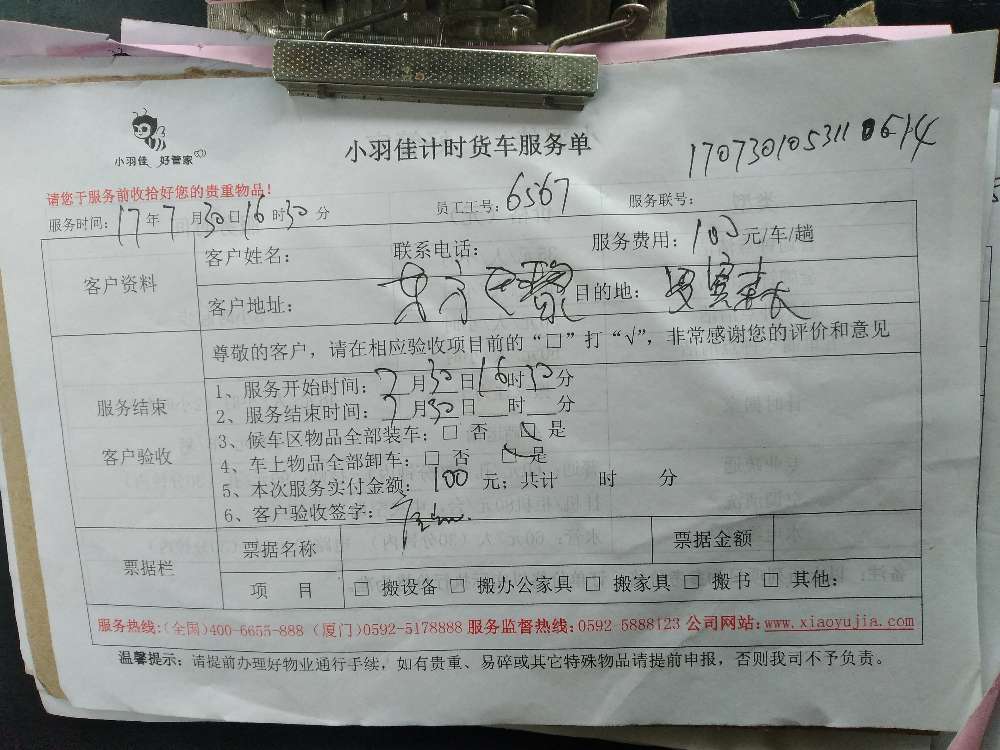 小羽佳 好管家
小羽佳计时货车服务单
请您于服务前收拾好您的贵重物品!
服务时间: 17年7月30日16时30分 员工工号: 6567 服务联号: 170730105311 0514
客户资料
客户姓名: 联系电话: 服务费用: 100元/车/趟
客户地址: 目的地:
尊敬的客户，请在相应验收项目前的“□”打“√”，非常感谢您的评价和意见
服务结束
客户验收
1、服务开始时间: 7月30日16时30分
2、服务结束时间: 7月30日__时__分
3、候车区物品全部装车: □ 否 ☑ 是
4、车上物品全部卸车: □ 否 ☑ 是
5、本次服务实付金额: 100 元; 共计 时 分
6、客户验收签字:
票据栏
票据名称 票据金额
项 目 □ 搬设备 □ 搬办公家具 □ 搬家具 □ 搬书 □ 其他:
服务热线:(全国)400-6655-888 (厦门)0592-5178888 服务监督热线:0592-5888123 公司网站:www.xiaoyujia.com
温馨提示: 请提前办理好物业通行手续，如有贵重、易碎或其它特殊物品请提前申报，否则我司不予负责。